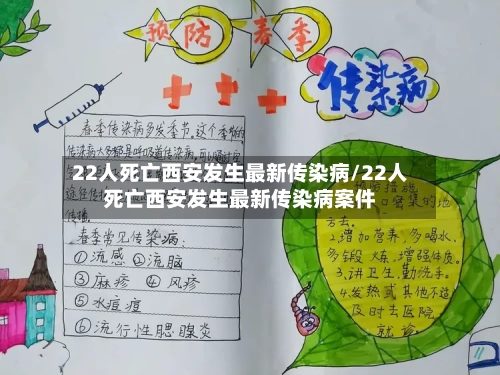 预防春季
传染病
春季传染病多发季节。这个季节的
传染病大多都是呼吸道传染病,可通过空
22人死亡西安发生最新传染病/22人
死亡西安发生最新传染病案件
春季常见传染病:
①流感 ②流脑
③麻疹 ④风疹
⑤水痘疽
⑥流行性腮腺炎
方去。
2,增加营养,多喝水,
多锻炼,增强体质。
3,讲卫生,勤洗手。
4.发热或其他不适
及时去医院
就诊